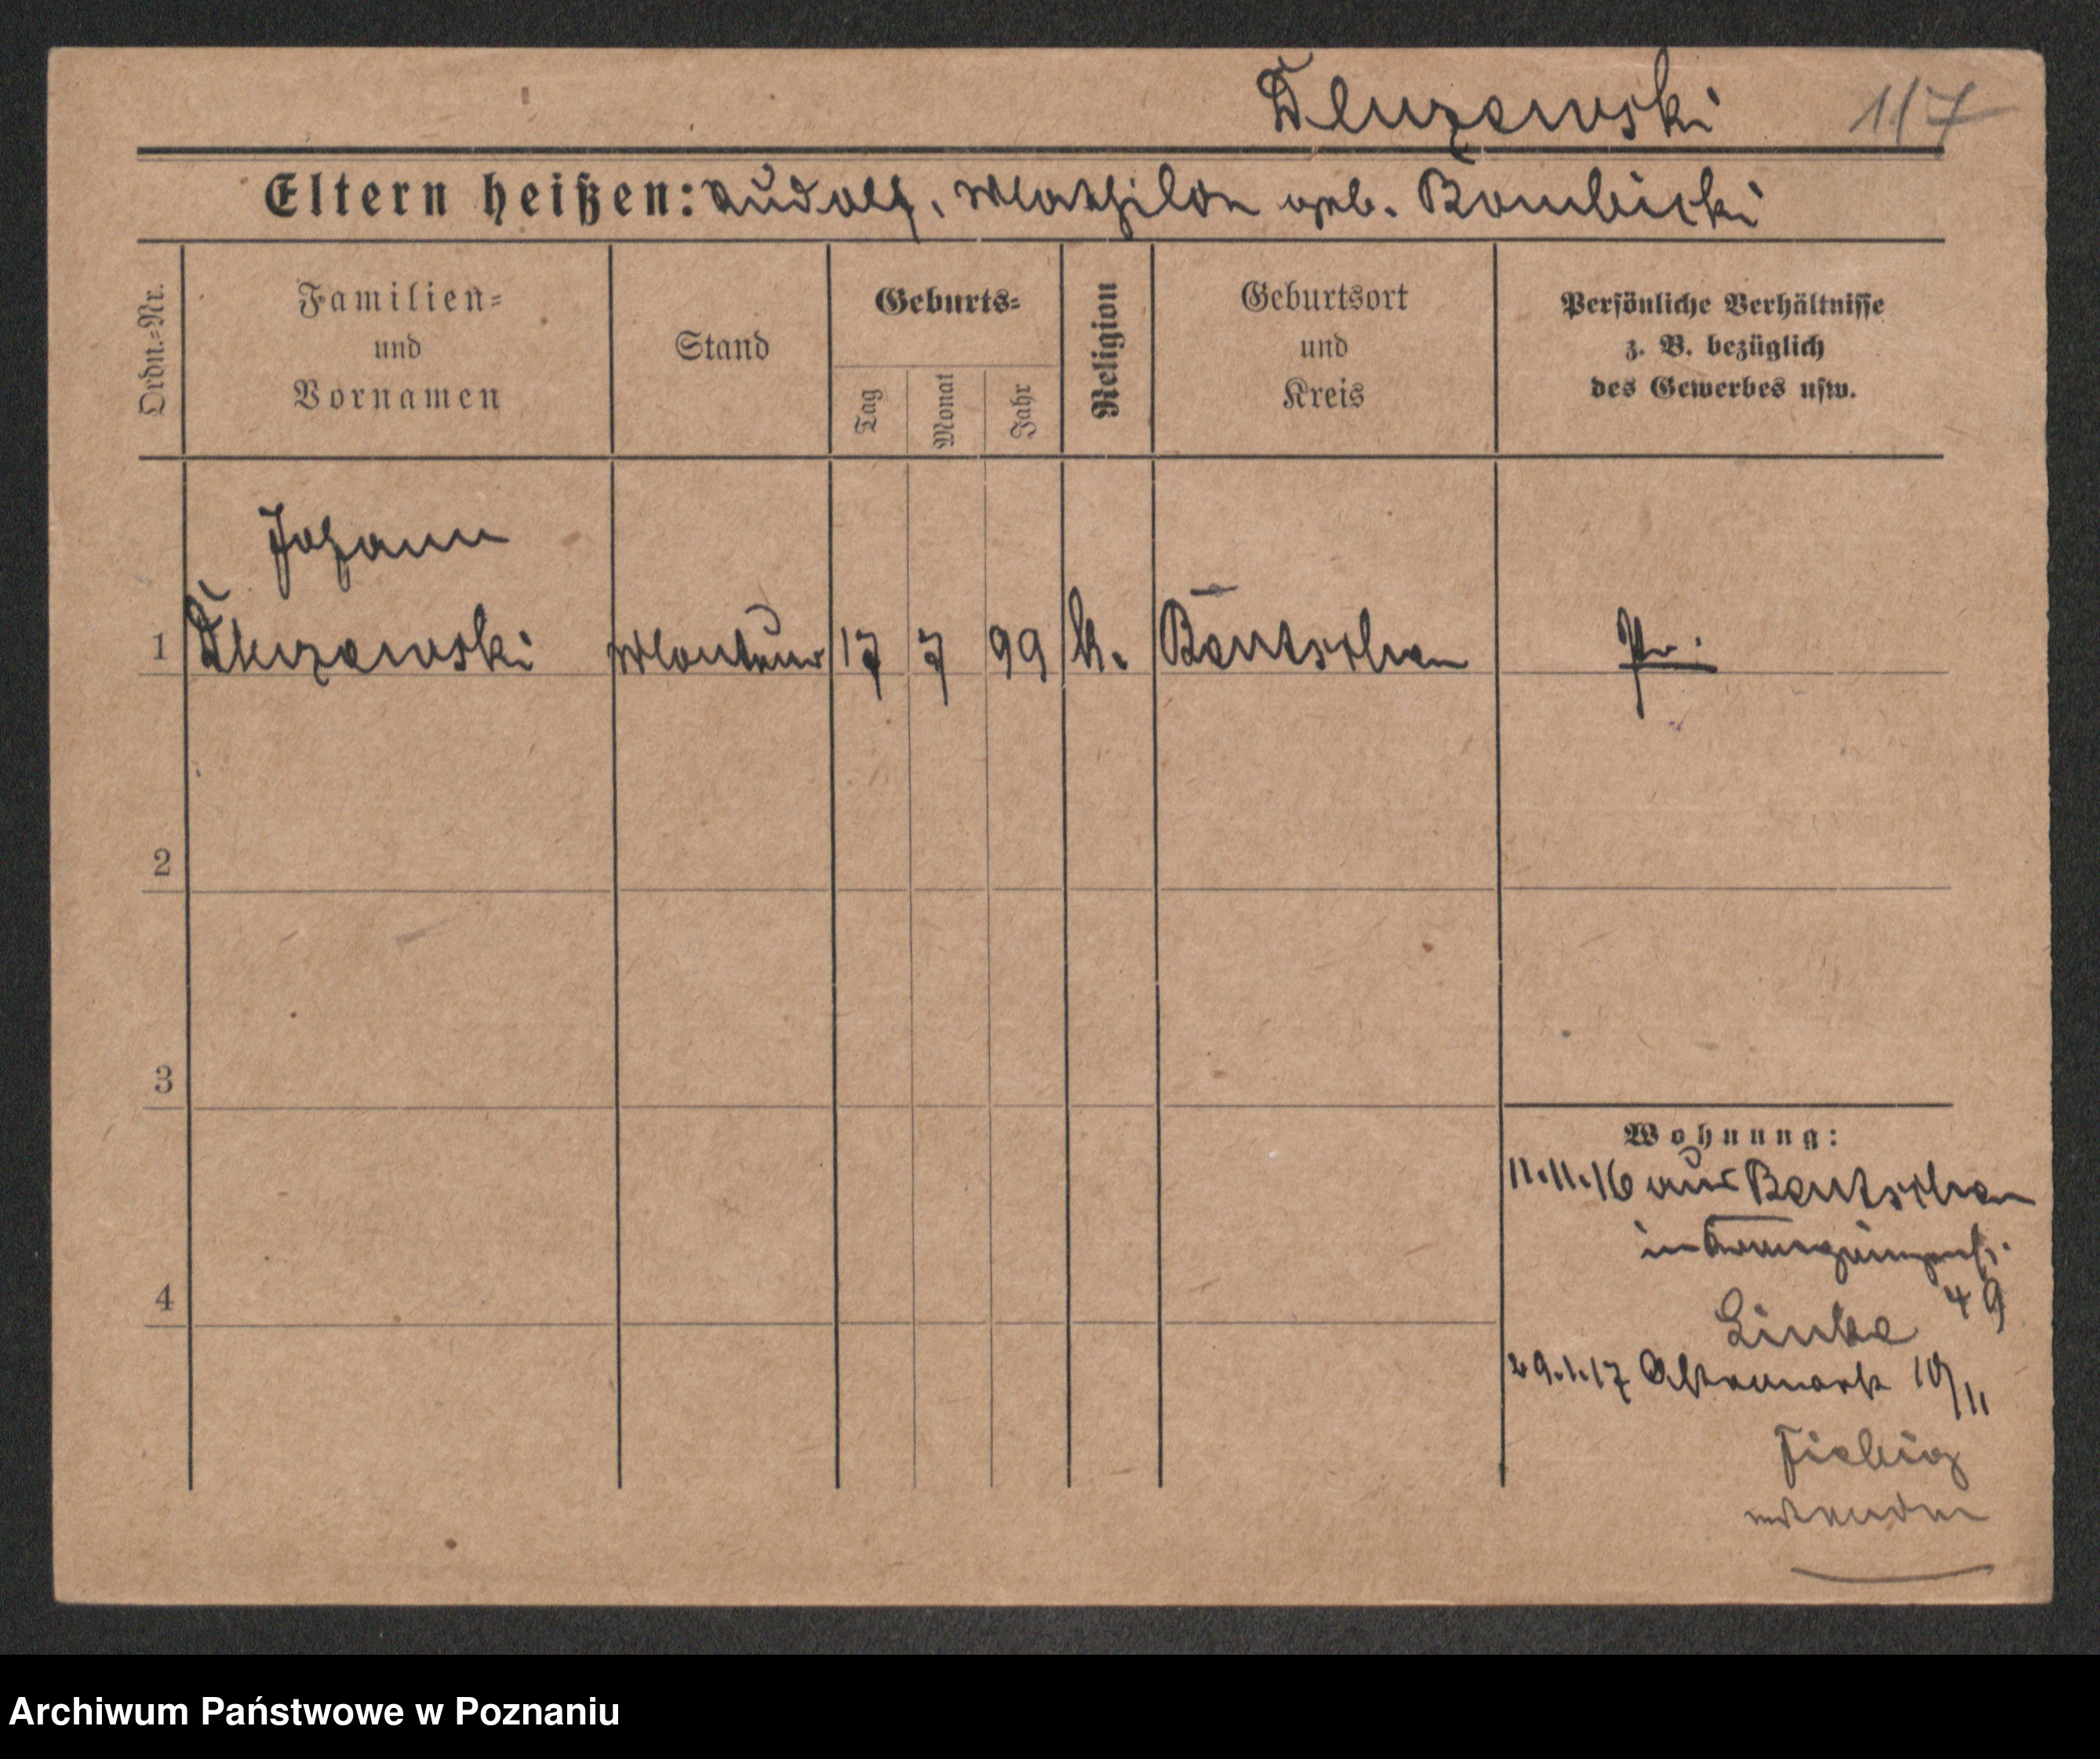 Dluzewski 117
Eltern heißen: Rudolf, Mathilde geb. Bombicki
Ordn.=Nr.
Familien=
und
Vornamen
Stand
Geburts=
Tag
Monat
Jahr
Religion
Geburtsort
und
Kreis
Persönliche Verhältnisse
z. B. bezüglich
des Gewerbes usw.
Johann
1 Dluzewski Monteur 17 7 99 k. Bentschen Pr.
2
3
4
Wohnung:
11.11.16 aus Bentschen
in
49
Linke
29.1.17 Altemarkt 10/11
Fiebig